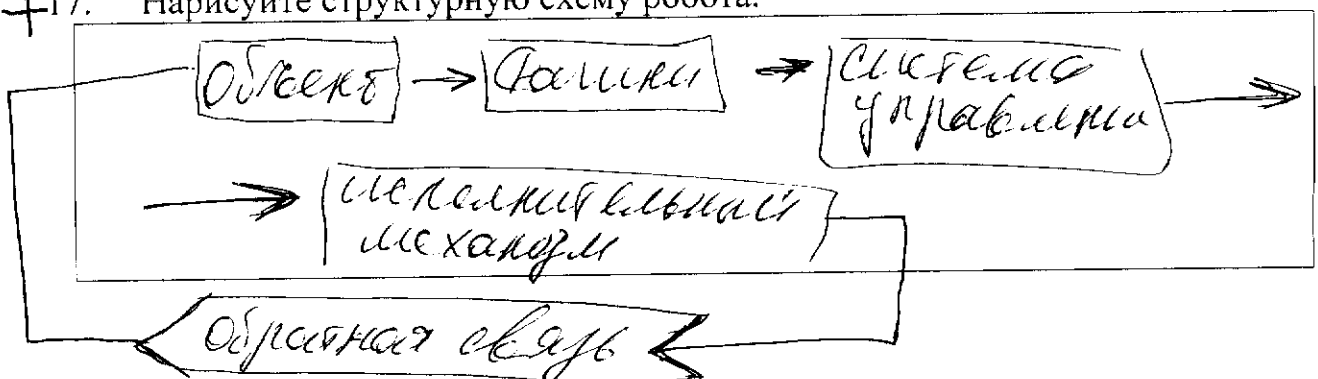 +17. Нарисуйте структурную схему робота.
Объект → Датчики → система
управления →
→ исполнительный
механизм
обратная связь